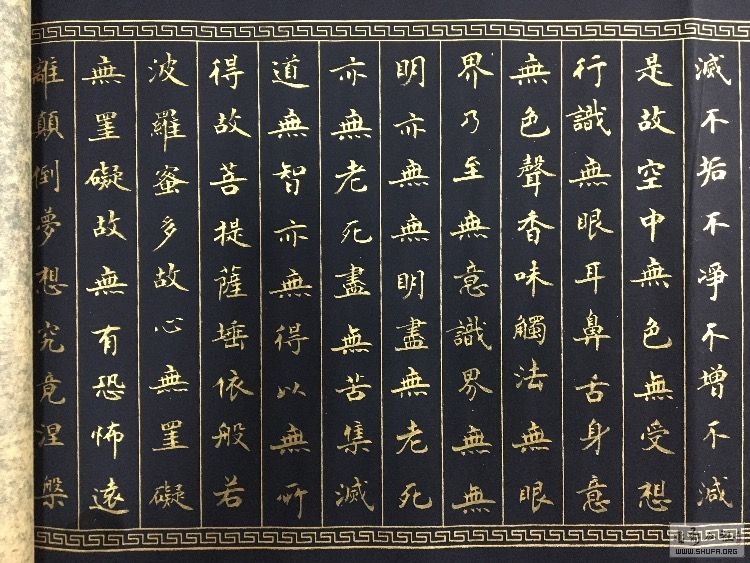 滅不垢不淨不增不減
是故空中無色無受想
行識無眼耳鼻舌身意
無色聲香味觸法無眼
界乃至無意識界無無
明亦無無明盡無老死
亦無老死盡無苦集滅
道無智亦無得以無所
得故菩提薩埵依般若
波羅蜜多故心無罣礙
無罣礙故無有恐怖遠
離顛倒夢想究竟涅槃
WWW.SHUFA.ORG